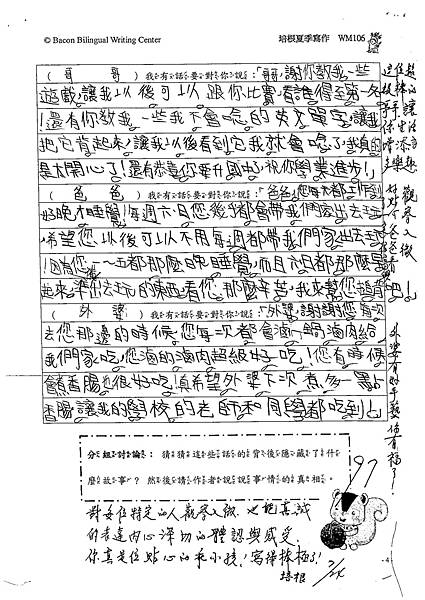 © Bacon Bilingual Writing Center 培根夏季寫作 WM106
(哥哥)我有話要對你說:「哥哥,謝謝你教我一些
遊戲,讓我以後可以跟你比賽看誰得第一名
!還有你教我一些我不會唸的英文單字,讓我
把它背起來,讓我以後看到它我就會唸了,我真的
是太開心了!還有恭喜你要升國中,祝你學業進步!」
(爸爸)我有話要對你說:「爸爸,您每天都工作到
好晚才睡覺!每週六日您幾乎都會帶我們家出去玩
,希望您以後可以不用每週都帶我們家出去玩
!因為您一~五都那麼晚睡覺,而且六日都那麼早
起來準備出去玩的東西,看您那麼辛苦,我來幫您搥背吧!」
(外婆)我有話要對你說:「外婆,謝謝您每次
去您那邊的時候,您每次都會滷一鍋滷肉給
我們家吃,您滷的滷肉超級好吃!您有時候
煮香腸也很好吃!真希望外婆下次煮多一點
香腸讓我的學校的老師和同學都吃到!」
觀察入微
好好介紹爸爸
外婆有好手藝你有福了!
分組討論:猜猜這些話的背後隱藏了什
麼故事?然後請作者說說事情的真相。
97
對每位特定的人觀察入微,也把真誠
的表達內心深切的體認與感受,
你真是位貼心的乖小孩!寫得棒極了!
培根 7/24
-4-